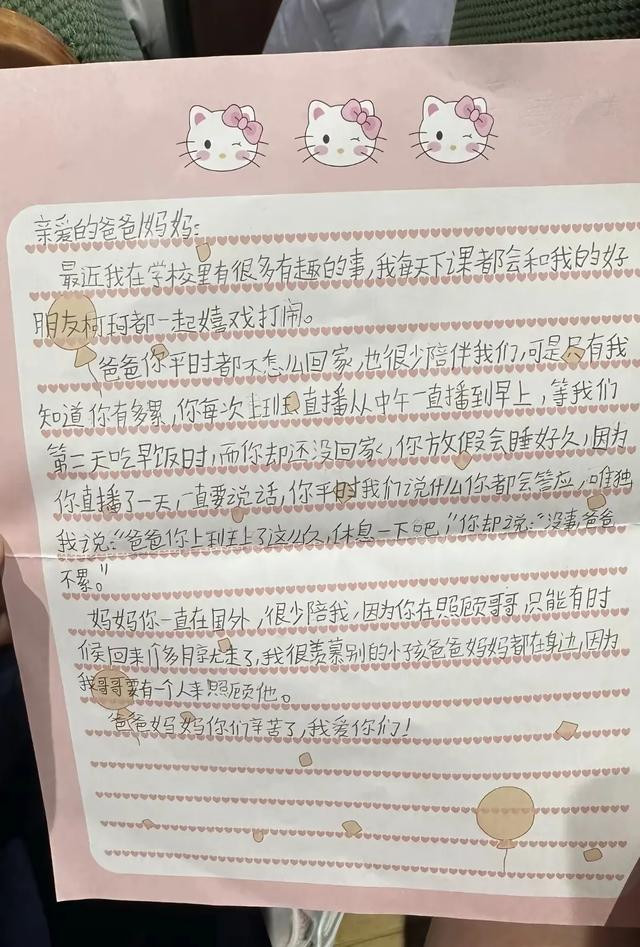 亲爱的爸爸妈妈:
最近我在学校里有很多有趣的事,我每天下课都会和我的好
朋友柯珂都一起嬉戏打闹。
爸爸你平时都不怎么回家,也很少陪伴我们,可是只有我
知道你有多累,你每次上班直播从中午一直播到早上,等我们
第二天吃早饭时,而你却还没回家,你放假会睡好久,因为
你直播了一天,一直要说话,你平时我们说什么你都会答应,唯独
我说:“爸爸你上班上了这么久,休息一下吧,”你却说:“没事,爸爸
不累。”
妈妈你一直在国外,很少陪我,因为你在照顾哥哥,只能有时
候回来1个多月就走了,我很羡慕别的小孩爸爸妈妈都在身边,因为
我哥哥要有一个人来照顾他。
爸爸妈妈你们辛苦了,我爱你们!